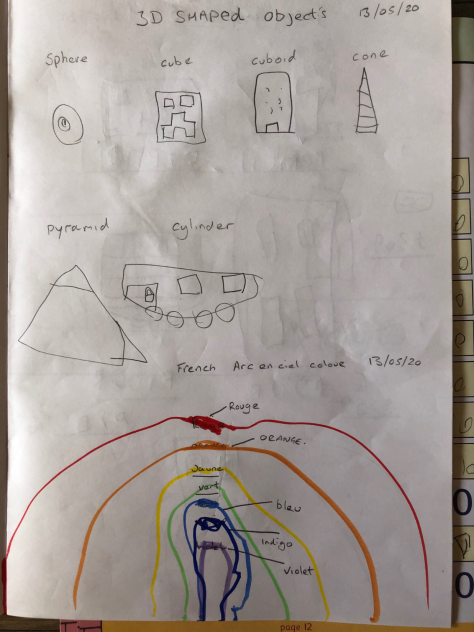 3D SHAPED object's 13/05/20
Sphere cube cuboid cone
pyramid cylinder
French Arc en ciel coloue 13/05/20
Rouge
ORANGE.
Jaune
vert
bleu
Indigo
Violet
page 12